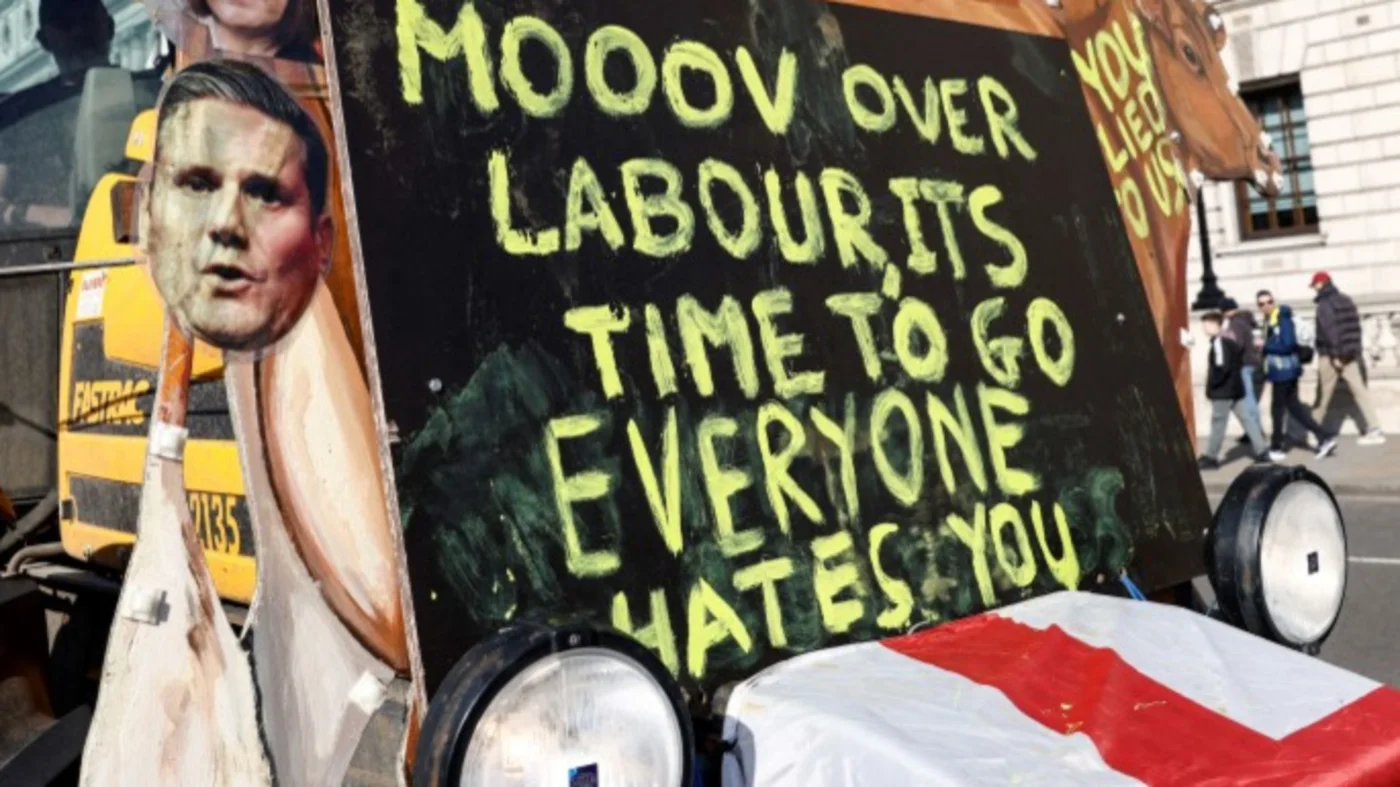 MOOOV OVER
LABOUR, ITS
TIME TO GO
EVERYONE
HATES YOU
YOU
LIED
TO US
FASTRAC
2135